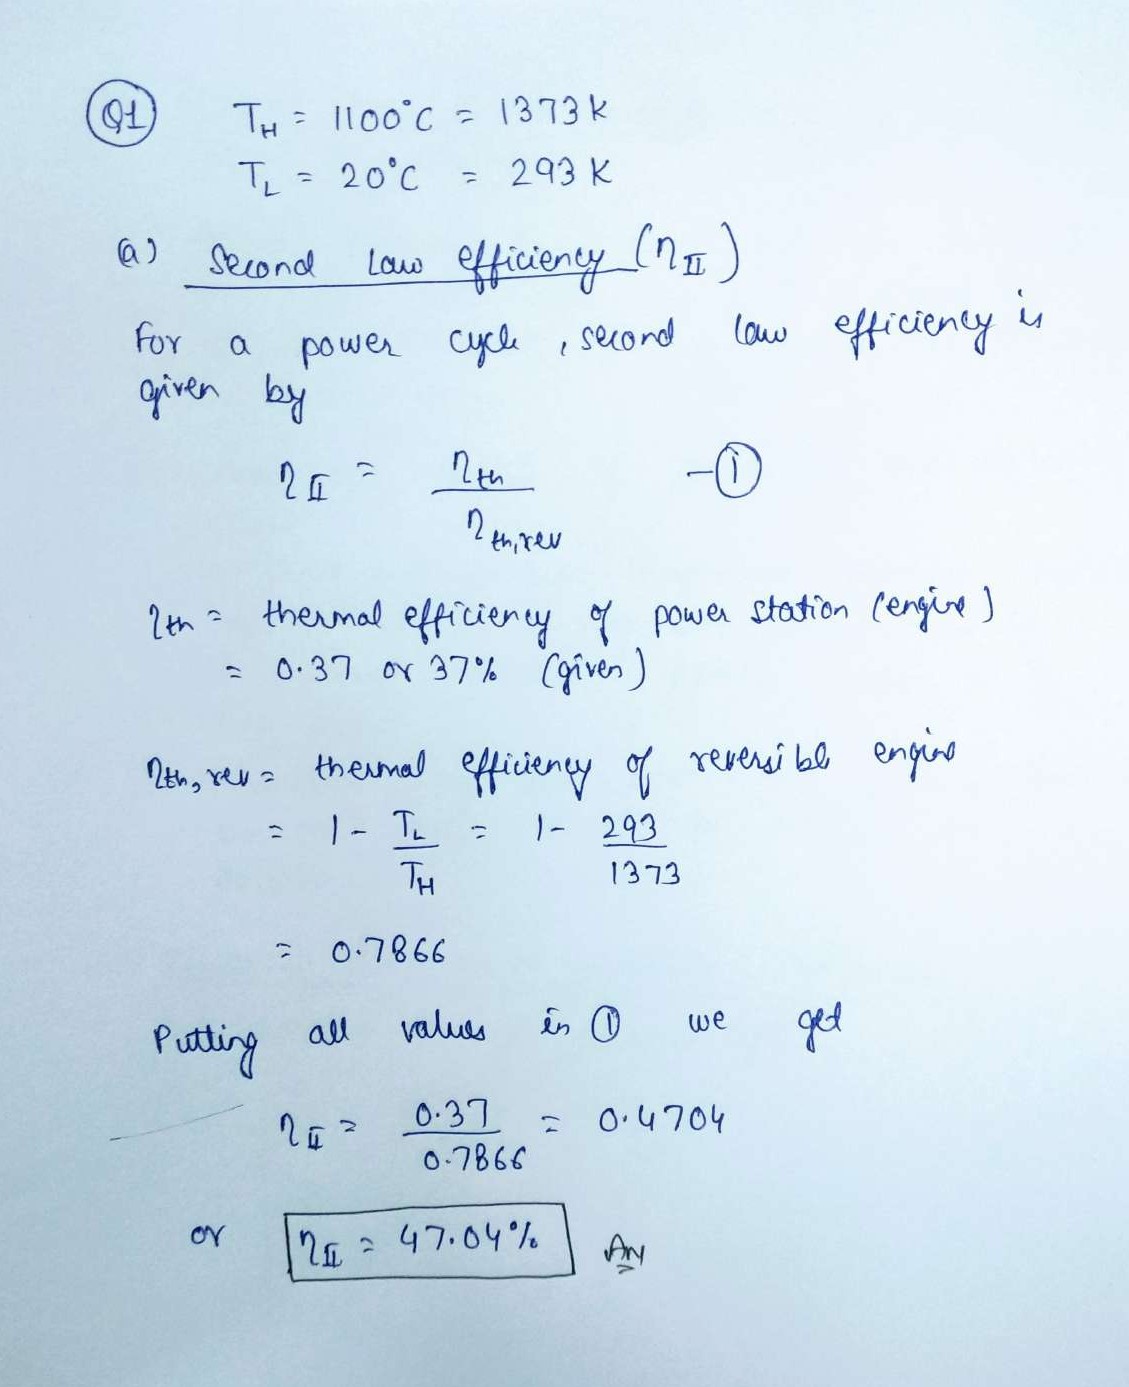 Q1 T_H = 1100°C = 1373 K
T_L = 20°C = 293 K
(a) Second Law efficiency (η_II)
For a power cycle, second law efficiency is
given by
η_II = η_th / η_th,rev -①
η_th = thermal efficiency of power station (engine)
= 0.37 or 37% (given)
η_th,rev = thermal efficiency of reversible engine
= 1 - T_L / T_H = 1 - 293 / 1373
= 0.7866
Putting all values in ① we get
η_II = 0.37 / 0.7866 = 0.4704
or η_II = 47.04% Ans